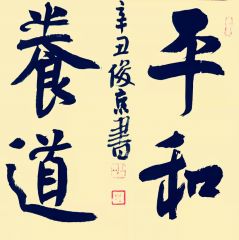 平和
養道
辛丑俊京書